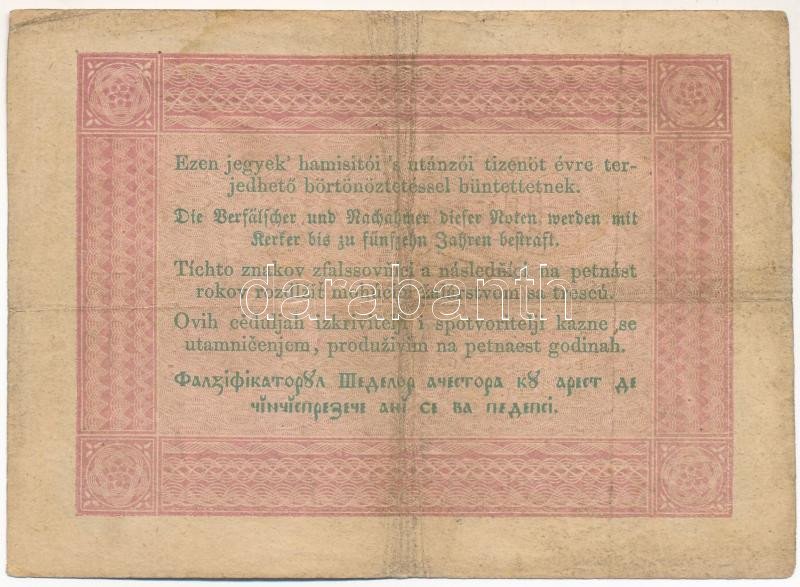 Ezen jegyek' hamisitói 's utánzói tizenöt évre ter-
jedhető börtönöztetéssel büntettetnek.
Die Verfälscher und Nachahmer dieser Noten werden mit
Kerker bis zu fünfzehn Jahren bestraft.
Tíchto znakov zfalssovňíci a následňíci na petnást
rokov rozďeľiť mohúcim žalárstvom sa trescú.
darabanth
Ovih ceduljah izkrivitelji i spotvoritelji kazne se
utamničenjem, produživim na petnaest godinah.
Фалзіфікаторꙋл Шеделор ачестора кꙋ арест де
чінчіспрезече ані се ва педепсі.